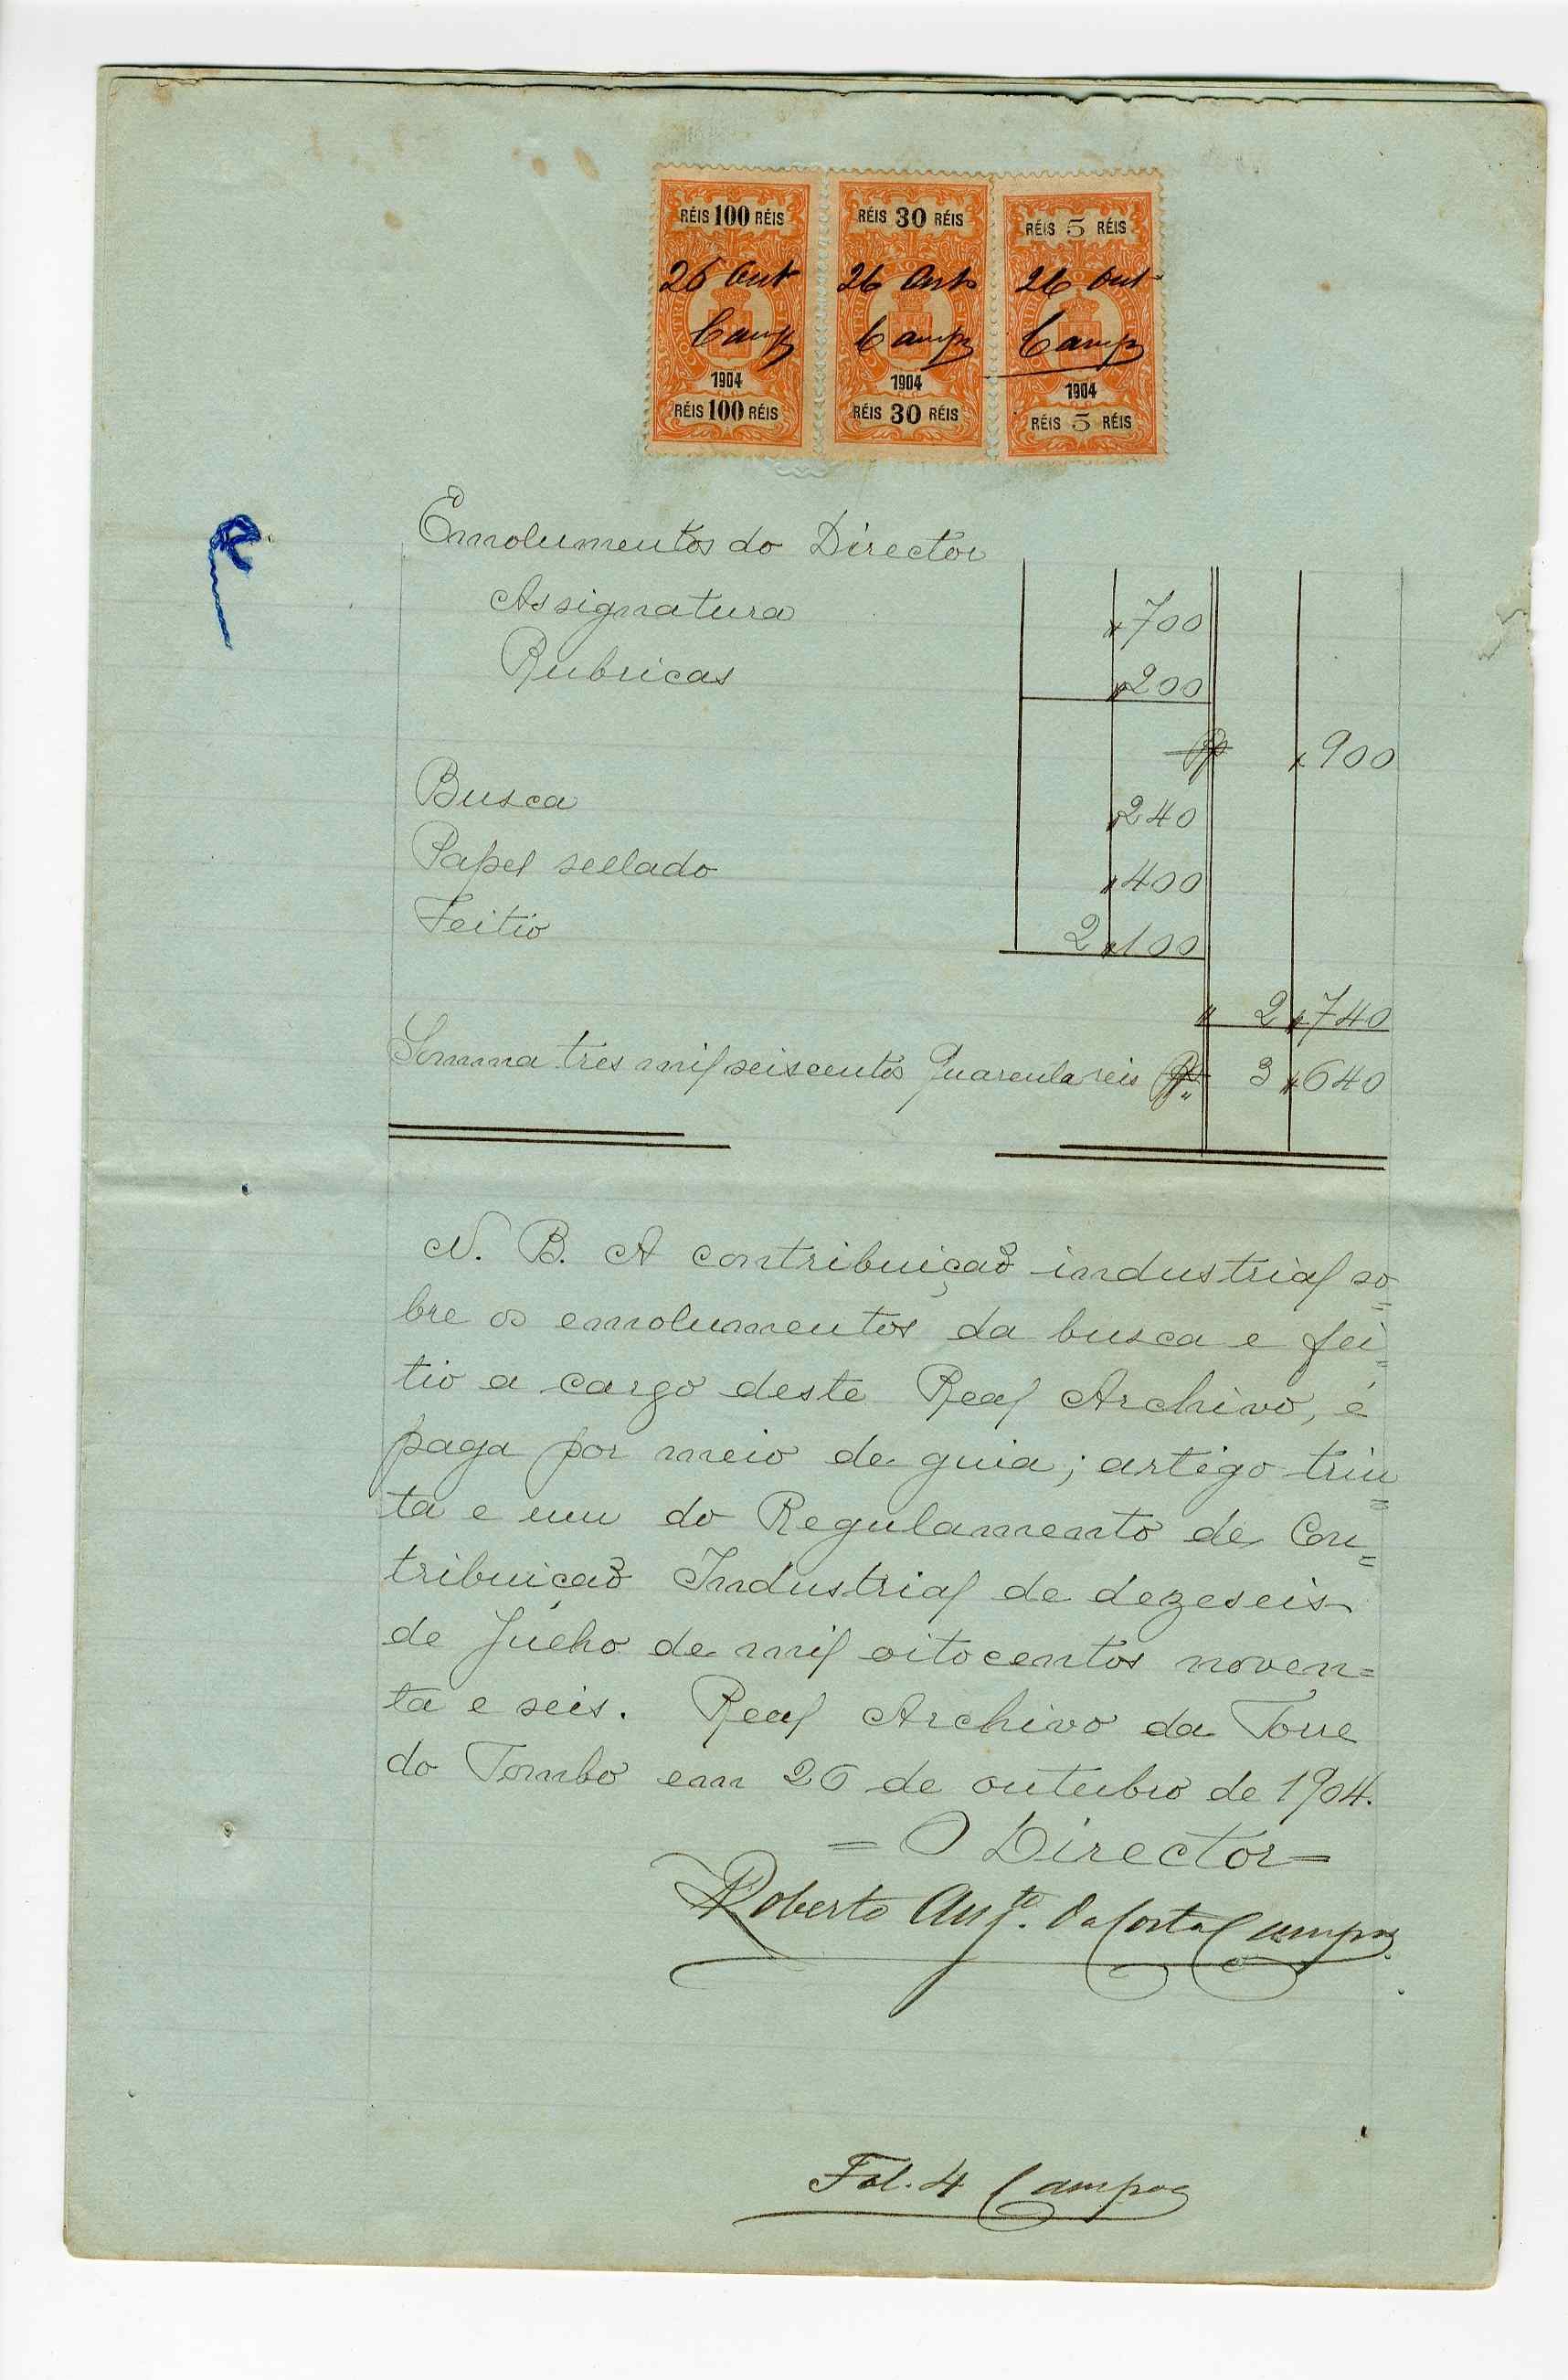 RÉIS 100 RÉIS RÉIS 30 RÉIS RÉIS 5 RÉIS
26 Out 26 Out 26 Out
Campos Campos Campos
1904 1904 1904
RÉIS 100 RÉIS RÉIS 30 RÉIS RÉIS 5 RÉIS
Emolumentos do Director
Assignatura 700
Rubricas 200
900
Busca 240
Papel sellado 400
Feitio 2 100
2 740
Somma tres mil seiscentos quarenta reis 3 640
N. B. A contribuição industrial so=
bre os emolumentos da busca e fei=
tio a cargo deste Real Archivo, é
paga por meio de guia; artigo trin=
ta e um do Regulamento de Con=
tribuição Industrial de dezeseis
de Julho de mil oitocentos noven=
ta e seis. Real Archivo da Torre
do Tombo em 26 de outubro de 1904.
= O Director =
Roberto Aug.to da Costa Campos
Fol. 4 Campos